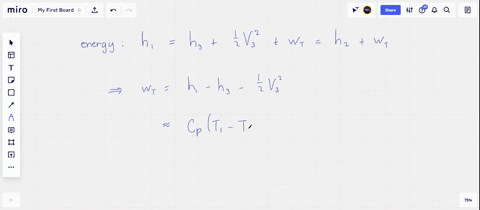 miro My First Board Share
energy: h₁ = h₃ + ½V₃² + w_T = h₂ + w_T
⟹ w_T = h₁ - h₃ - ½V₃²
≈ C_p (T₁ - T
75%